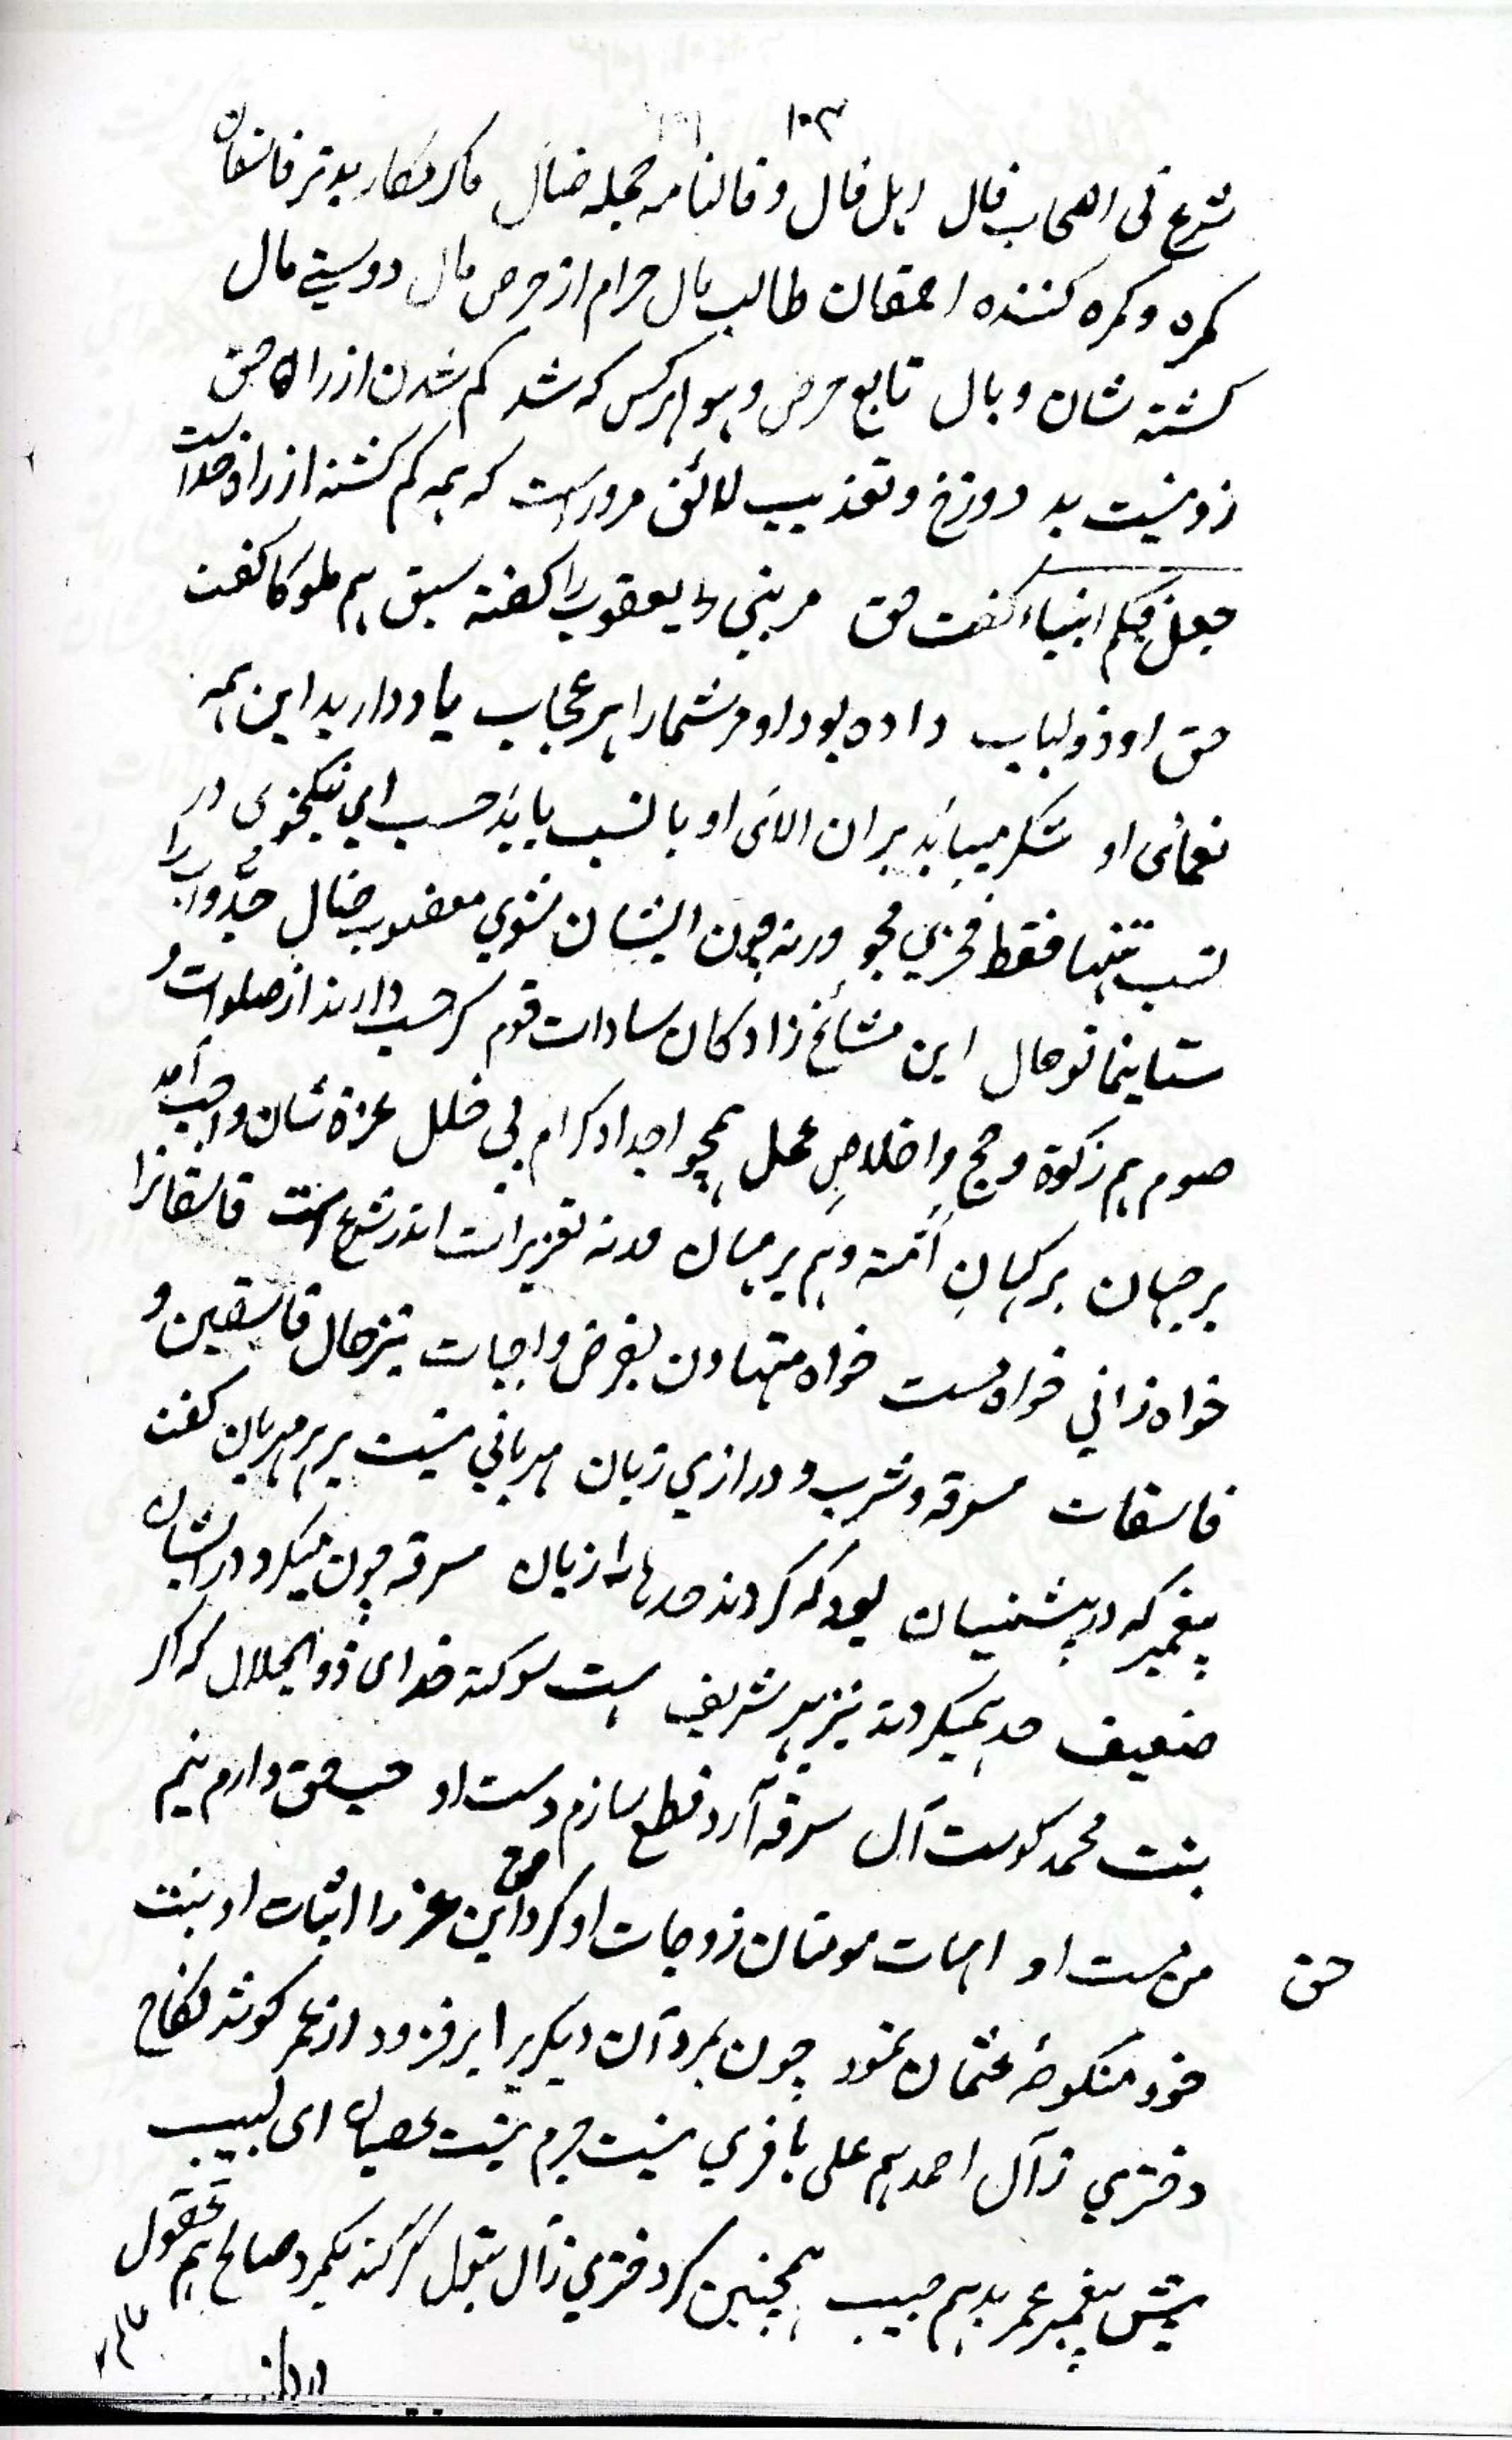 ۱۰۳
شرع فی اصحاب فال اہل فال و فالنامہ جملہ ضال ماکر مکار بدتر فاسقان
کمرہ و کمرہ کنندہ احمقان طالب مال حرام از حرص مال دوستی مال
کشتہ شان وبال تابع حرص و ہوا ہرکس کہ شد کم شدن از راہ حق
زو نیست بد دوزخ و تعذیب لائق مرورا ست کہ ہمہ کم کشتہ از راہ خداست
جعل فیکم انبیاء کفت حق مر بنی یعقوب را کفتہ سبق ہم ملوکا کفت
حق او ذو لباب دادہ بود او مر شمارا ہر عجاب یاد دارید این ہمہ
نعمائی او شکر میباید بران الائی او با نسب باید حسب ای نیکخوی در
نسب تنہا فقط فخری مجو ورنہ چون ایشان شوی مغضوب ضال جد و اب را
ستاینما تو حال این مشائخ زادکان سادات قوم کر حسب دارند از صلوات و
صوم ہم زکوة و حج و اخلاص عمل ہمچو اجداد کرام بی خلل عزة شان واجب آمد
بر جہان بر کہان امت و ہم بر مہان ورنہ تعزیرات اندر شرع است فاسقانرا
خواہ زانی خواہ مست خواہ متہاون بفرض واجبات نیز حال فاسقین و
فاسقات سرقہ و شرب و درازی زبان مہربانی نیست بر مہربان کفت
پیغمبر کہ در پیشینیان بود کہ کردند حدہا را زیان سرقہ چون میکرد در ایشان
ضعیف حد ہمیکردند نیز ہر شریف ہست سوکند خدای ذو الجلال کہ اکر
بنت محمد کوست آل سرقہ آرد قطع سازم دست او حب حق دارم نیم
من مست او امہات مومنان زوجات او کرد حق این عز را اثبات او بنت
حق
خود منکوحہ عثمان نمود چون بمرد آن دیکریرا بر فزود از عمر کو شد نکاح
دختری ز آل احمد ہم علی با فری نیست جرم نیست عصیان ای لبیب
پیش پیغمبر عمر بد ہم حبیب ہمچنین کر دختری ز آل بتول کر کند یکمرد صالح ہم عقول